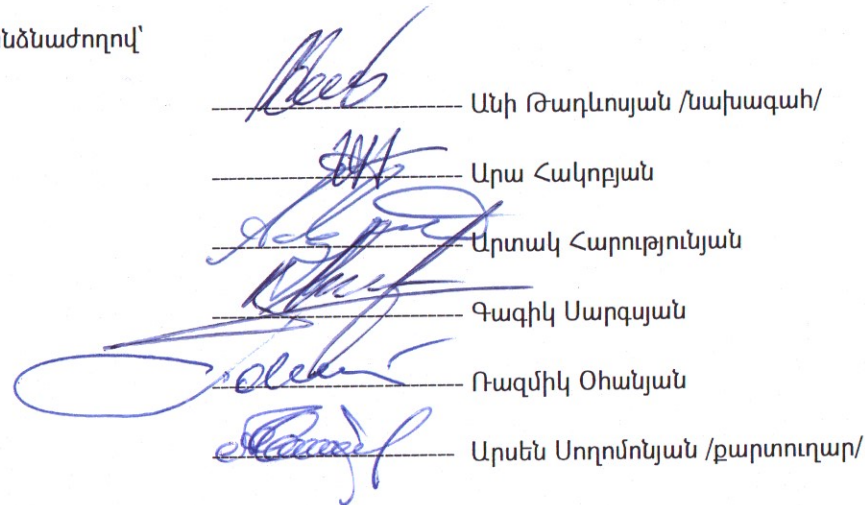 նձնաժողով՝
Անի Թադևոսյան /նախագահ/
Արա Հակոբյան
Արտակ Հարությունյան
Գագիկ Սարգսյան
Ռազմիկ Օհանյան
Արսեն Սողոմոնյան /քարտուղար/